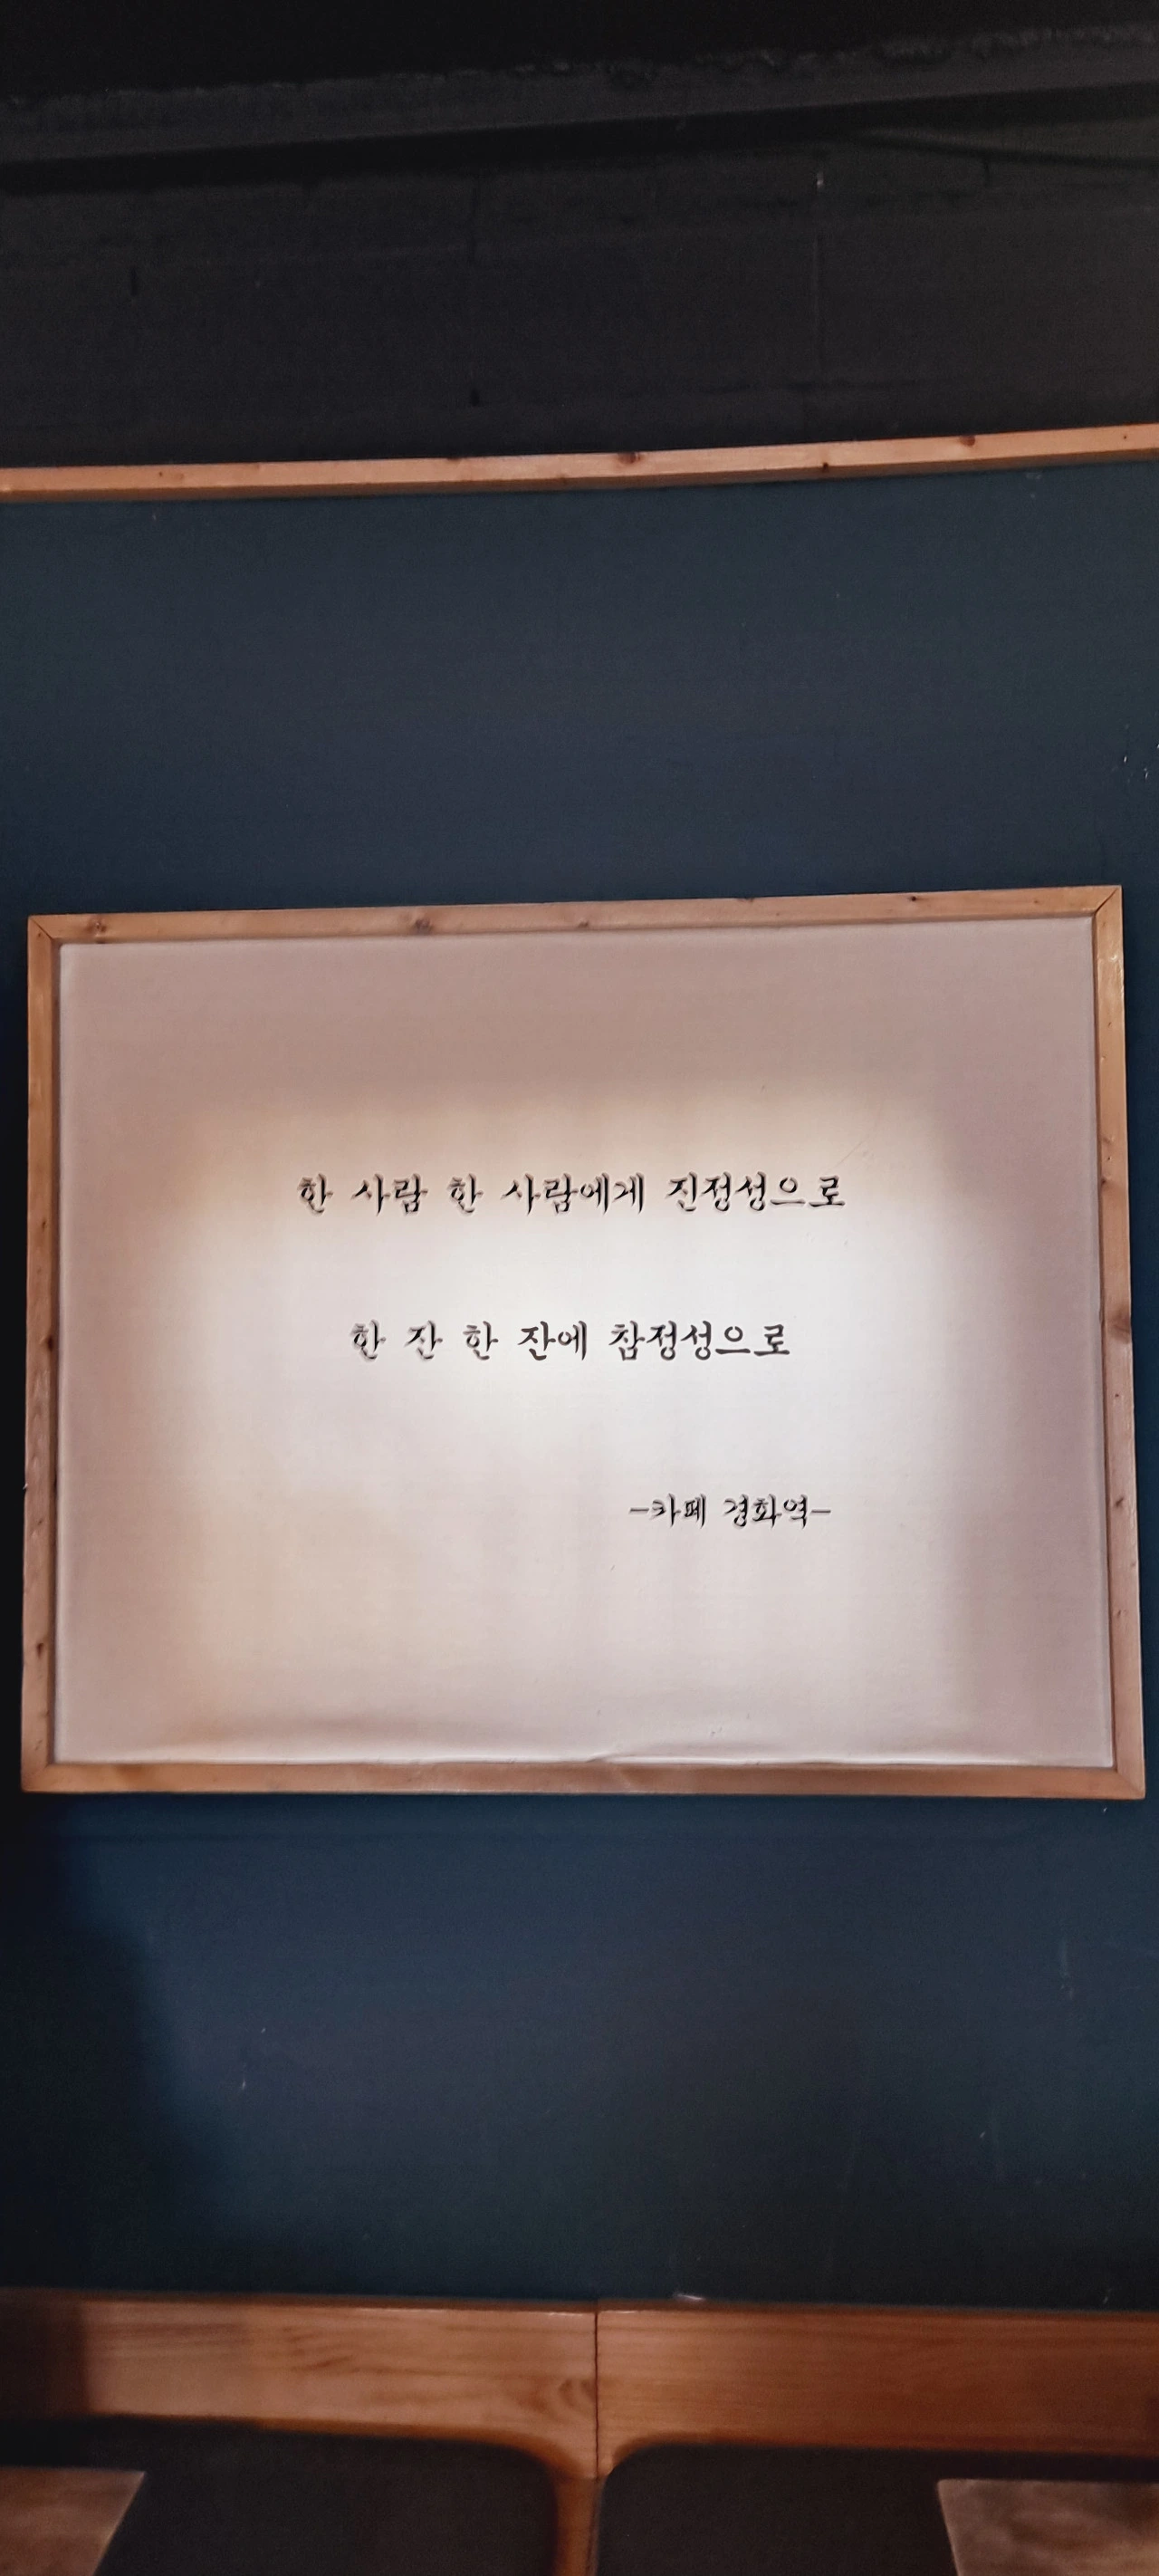 한 사람 한 사람에게 진정성으로
한 잔 한 잔에 참정성으로
-카페 경화역-